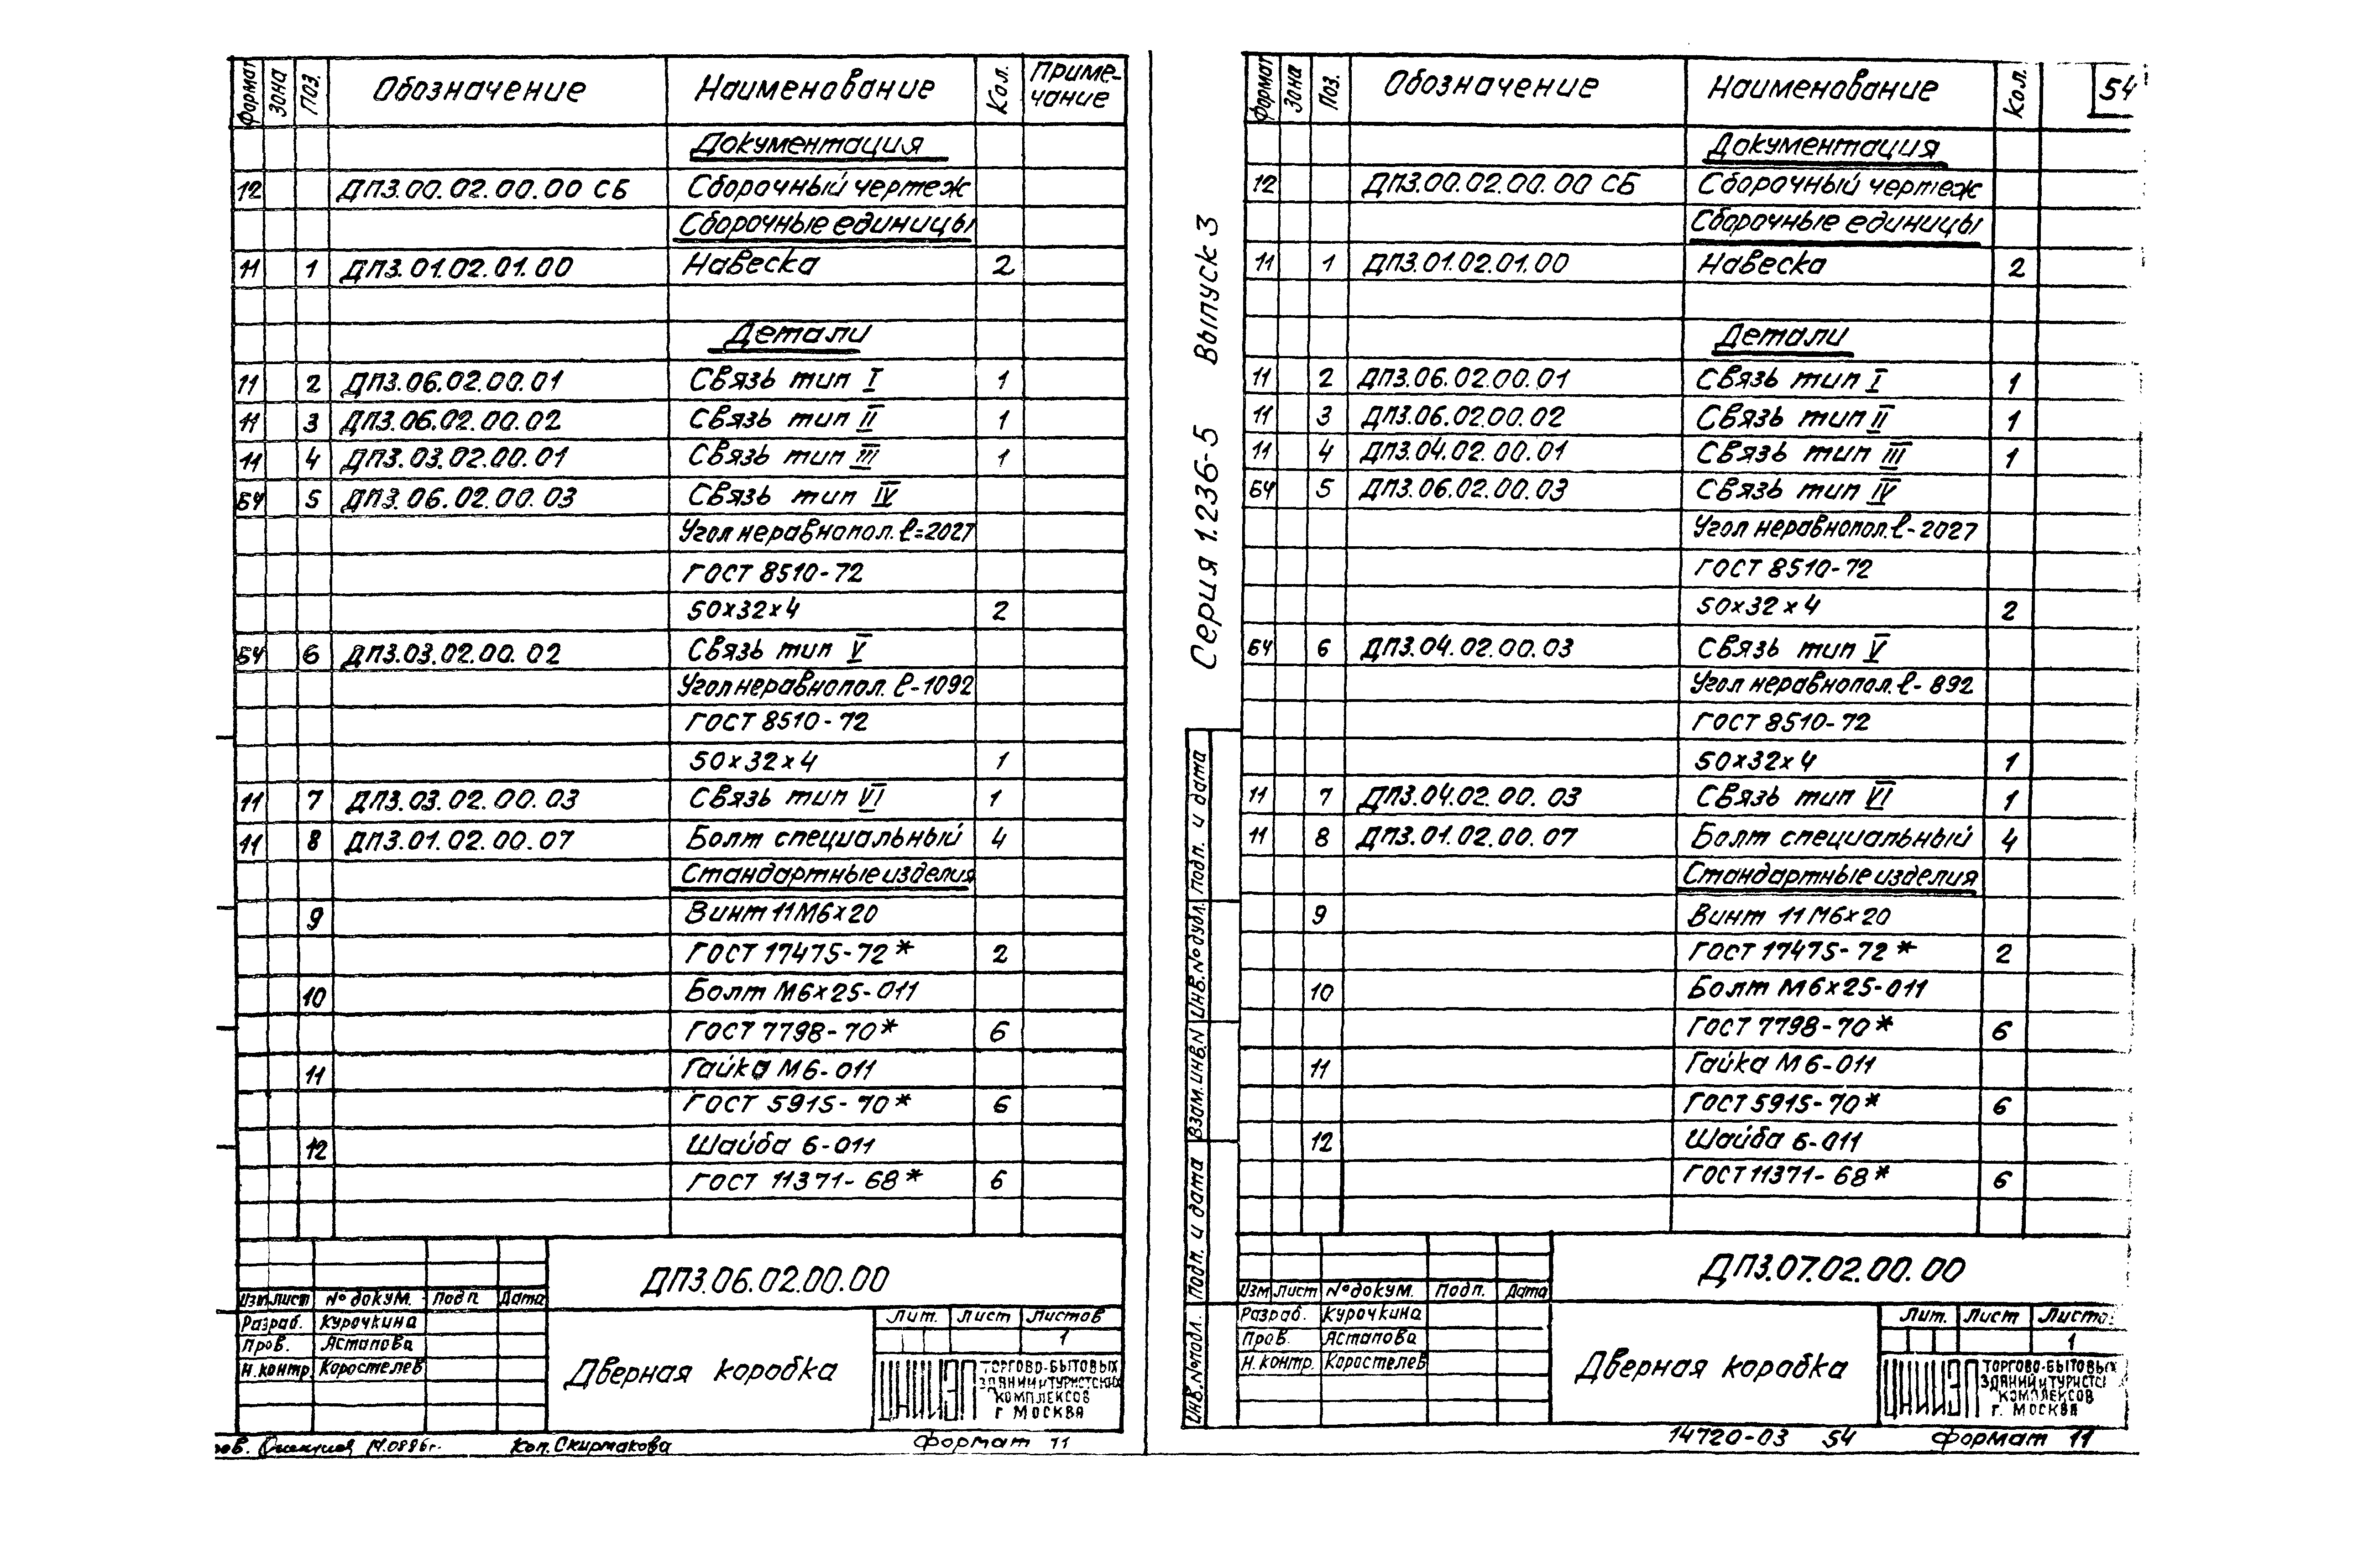 Формат Зона Поз. Обозначение Наименование Кол. Приме-чание
Документация
12 ДП3.00.02.00.00 СБ Сборочный чертеж
Сборочные единицы
11 1 ДП3.01.02.01.00 Навеска 2
Детали
11 2 ДП3.06.02.00.01 Связь тип I 1
11 3 ДП3.06.02.00.02 Связь тип II 1
11 4 ДП3.03.02.00.01 Связь тип III 1
БЧ 5 ДП3.06.02.00.03 Связь тип IV
Угол неравнопол. ℓ=2027
ГОСТ 8510-72
50х32х4 2
БЧ 6 ДП3.03.02.00.02 Связь тип V
Угол неравнопол. ℓ-1092
ГОСТ 8510-72
50х32х4 1
11 7 ДП3.03.02.00.03 Связь тип VI 1
11 8 ДП3.01.02.00.07 Болт специальный 4
Стандартные изделия
9 Винт 11М6х20
ГОСТ 17475-72* 2
10 Болт М6х25-011
ГОСТ 7798-70* 6
11 Гайка М6-011
ГОСТ 5915-70* 6
12 Шайба 6-011
ГОСТ 11371-68* 6
ДП3.06.02.00.00
Изм Лист № докум. Подп Дата
Разраб. Курочкина
Пров. Астапова
Н.контр. Коростелев
Дверная коробка
Лит. Лист Листов
1
ЦНИИЭП ТОРГОВО-БЫТОВЫХ
ЗДАНИЙ И ТУРИСТСКИХ
КОМПЛЕКСОВ
Г МОСКВА
Коп. Скирмакова Формат 11
Серия 1.236-5 Выпуск 3
Формат Зона Поз. Обозначение Наименование Кол. 54
Документация
12 ДП3.00.02.00.00 СБ Сборочный чертеж
Сборочные единицы
11 1 ДП3.01.02.01.00 Навеска 2
Детали
11 2 ДП3.06.02.00.01 Связь тип I 1
11 3 ДП3.06.02.00.02 Связь тип II 1
11 4 ДП3.04.02.00.01 Связь тип III 1
БЧ 5 ДП3.06.02.00.03 Связь тип IV
Угол неравнопол. ℓ-2027
ГОСТ 8510-72
50х32х4 2
БЧ 6 ДП3.04.02.00.03 Связь тип V
Угол неравнопол. ℓ-892
ГОСТ 8510-72
50х32х4 1
11 7 ДП3.04.02.00.03 Связь тип VI 1
11 8 ДП3.01.02.00.07 Болт специальный 4
Стандартные изделия
9 Винт 11М6х20
ГОСТ 17475-72* 2
10 Болт М6х25-011
ГОСТ 7798-70* 6
11 Гайка М6-011
ГОСТ 5915-70* 6
12 Шайба 6-011
ГОСТ 11371-68* 6
Инв.№подл. Подп. и дата Взам.инв.N Инв.№дубл. Подп. и дата
ДП3.07.02.00.00
Изм Лист № докум. Подп. Дата
Разраб. Курочкина
Пров. Астапова
Н.контр. Коростелев
Дверная коробка
Лит. Лист Листо
1
ЦНИИЭП ТОРГОВО-БЫТОВЫХ
ЗДАНИЙ И ТУРИСТС
КОМПЛЕКСОВ
Г. МОСКВА
14720-03 54 Формат 11